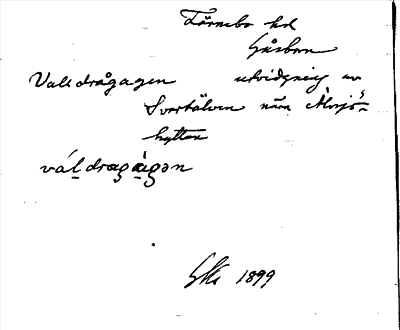 Färnebo hd
Gåsborn
Valldrågagen utvidgning av
Svartälven nära Älvsjö-
hyttan
vál̠dragà̠gən
1899